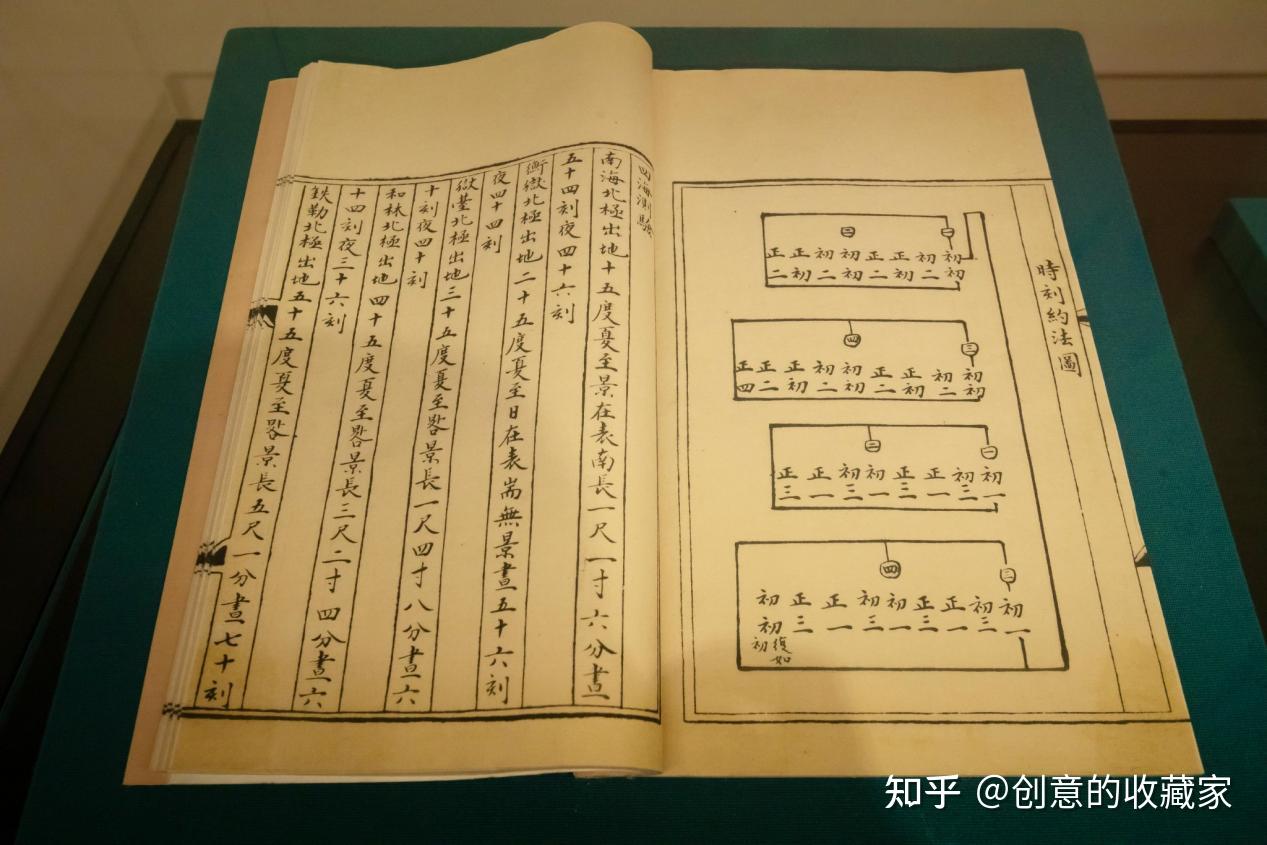 時刻約法圖
初初 初二 正初 正二 初初 初二 正初 正二
三 四
初初 初二 正初 正二 初初 初二 正初 正二 正四
一 二
初一 初三 正一 正三 初一 初三 正一 正三
三 四
初一 初三 正一 正三 初一 初三 正一 正三 初初
復如初
四海測驗
南海北極出地十五度夏至景在表南長一尺一寸六分晝
五十四刻夜四十六刻
衡嶽北極出地二十五度夏至日在表耑無景晝五十六刻
夜四十四刻
嶽臺北極出地三十五度夏至晷景長一尺四寸八分晝六
十刻夜四十刻
和林北極出地四十五度夏至晷景長三尺二寸四分晝六
十四刻夜三十六刻
鉄勒北極出地五十五度夏至晷景長五尺一分晝七十刻
知乎 @创意的收藏家